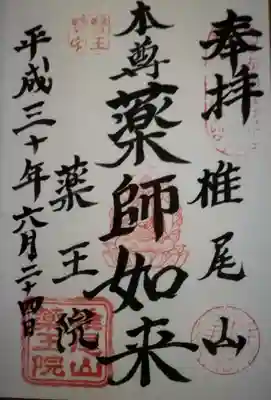 奉拝
椎尾山
本尊
薬師如来
薬王院
平成三十年六月二十四日
椎尾山
薬王院